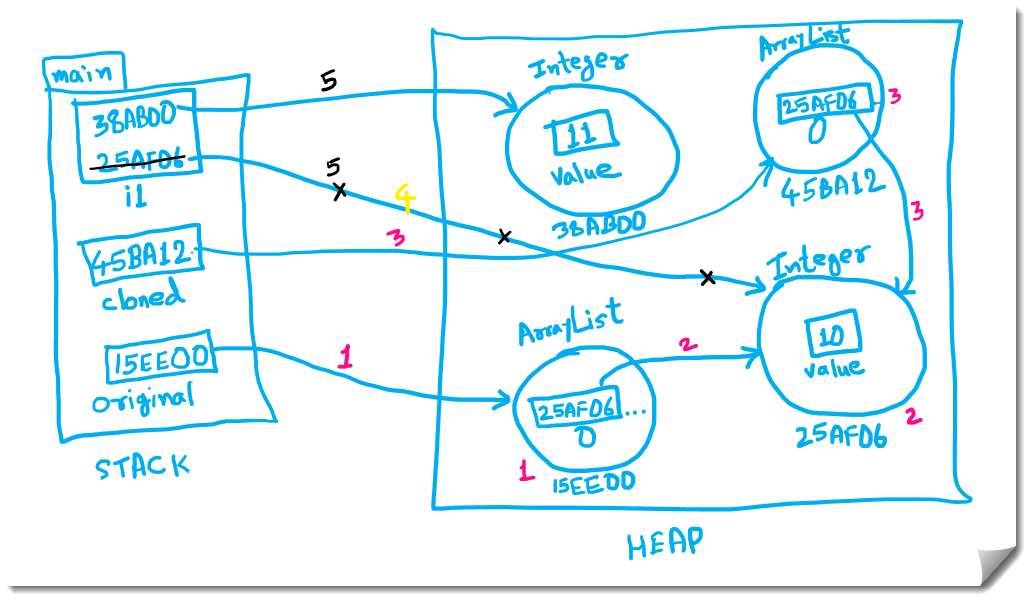 main
38AB00
25AF06
i1
45BA12
cloned
15EE00
original
STACK
5
5
4
3
1
Integer
11
value
38AB00
ArrayList
25AF06
3
0
45BA12
3
Integer
10
value
25AF06
2
ArrayList
2
25AF06...
0
1
15EE00
HEAP